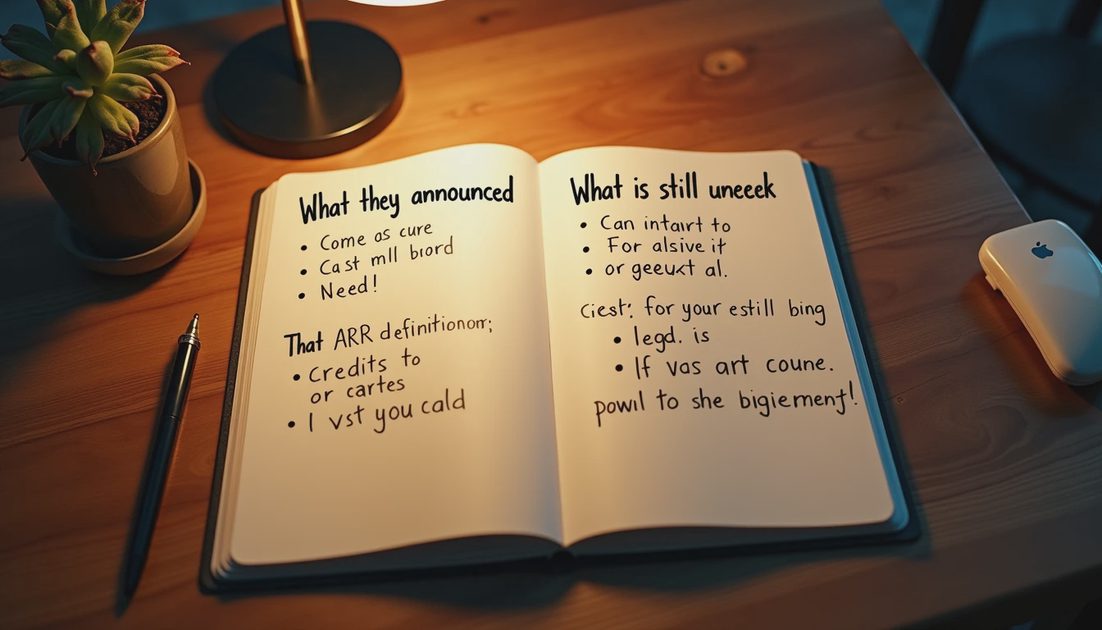 What they announced
• Come as cure
• Cast mll biord
• Need!
That ARR definitionorr;
• Credits to
or cartes
• I vst you cald
What is still uneeek
• Can intaırt to
• For alsive it
• or geeuxt al.
Ciest: for your estill bing
• legd. is
• If vas art coune.
powıl to she bigiement!